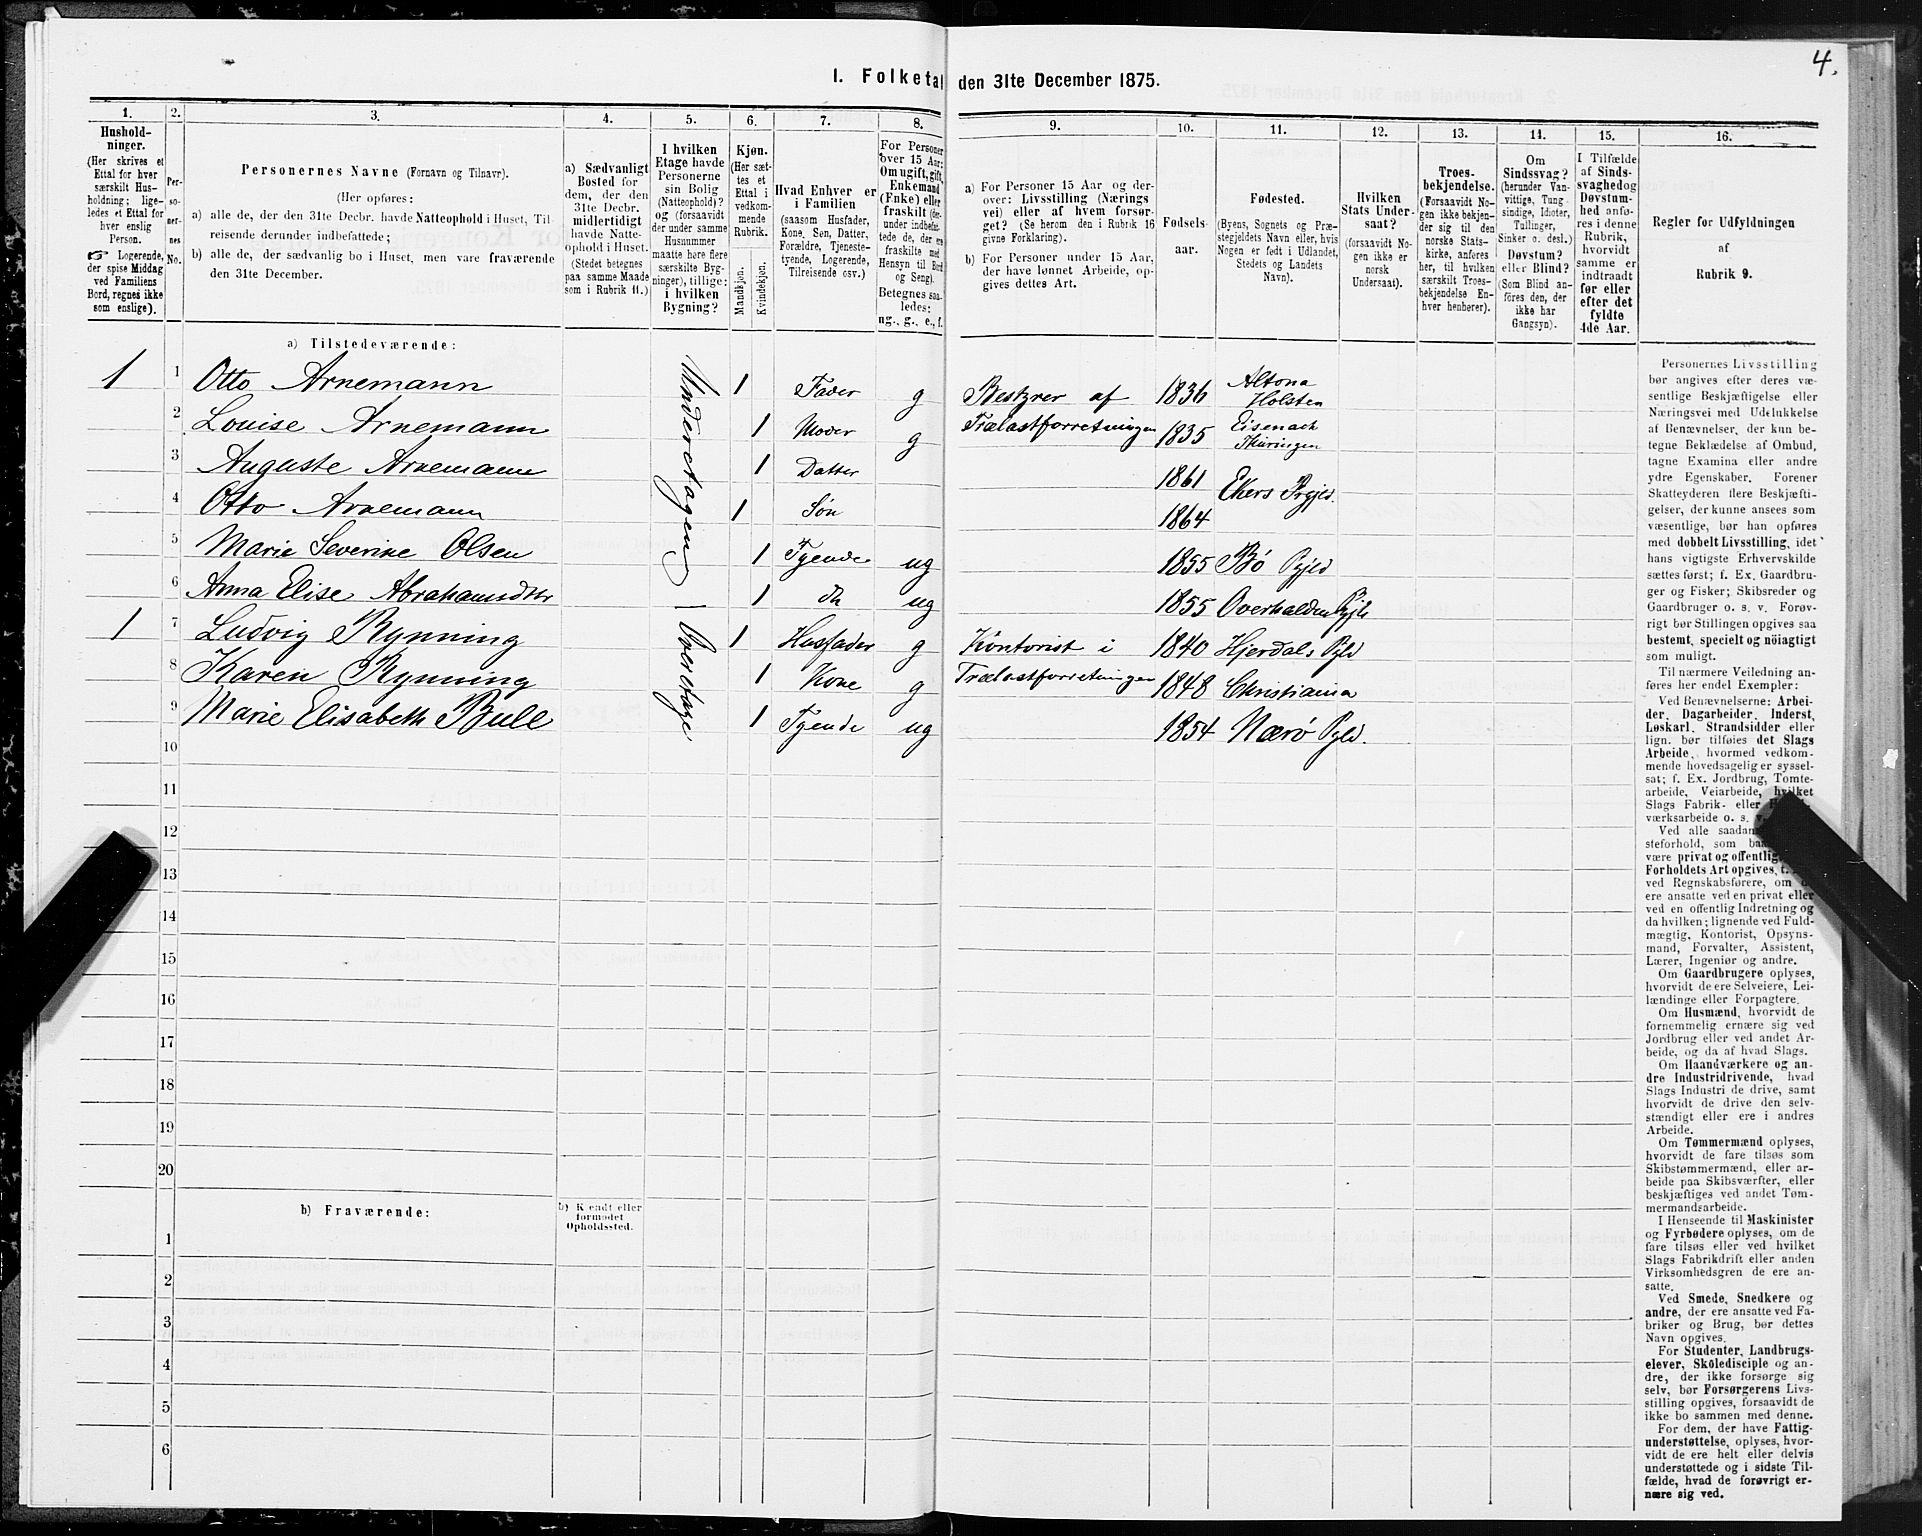 4.
I. Folketal den 31te December 1875.
1.
Hushold-
ninger.
(Her skrives et
Ettal for hver
særskilt Hus-
holdning; lige-
ledes et Ettal for
hver enslig
Person.
☞ Logerende,
der spise Middag
ved Familiens
Bord, regnes ikke
som enslige).
2.
Per-
so-
ner-
nes
No.
3.
Personernes Navne (Fornavn og Tilnavr).
(Her opføres:
a) alle de, der den 31te Decbr. havde Natteophold i Huset, Til-
reisende derunder indbefattede;
b) alle de, der sædvanlig bo i Huset, men vare fraværende
den 31te December.
4.
a) Sædvanligt
Bosted for
dem, der den
31te Decbr.
midlertidigt
havde Natte-
ophold i Huset.
(Stedet betegnes
paa samme Maade
som i Rubrik 11.)
5.
I hvilken
Etage havde
Personerne
sin Bolig
(Natteophold)?
og (forsaavidt
der under samme
Husnummer
maatte høre flere
særskilte Byg-
ninger), tillige:
i hvilken
Bygning?
6.
Kjøn.
(Her sæt-
tes et
Ettal i
vedkom-
mende
Rubrik.
Mandkjøn.
Kvindekjøn.
7.
Hvad Enhver er
i Familien
(saasom Husfader,
Kone, Søn, Datter,
Forældre, Tjeneste-
tyende, Logerende,
Tilreisende osv.)
8.
For Personer
over 15 Aar:
Om ugift, gift,
Enkemand
(Enke) eller
fraskilt (der-
under indbefat-
tede de, der ere
fraskilte med
Hensyn til Bord
og Seng).
Betegnes saa-
ledes:
ug., g., e., f.
9.
a) For Personer 15 Aar og der-
over: Livsstilling (Nærings
vei) eller af hvem forsør-
get? (Se herom den i Rubrik 16
givne Forklaring).
b) For Personer under 15 Aar,
der have lønnet Arbeide, op-
gives dettes Art.
10.
Fødsels-
aar.
11.
Fødested.
(Byens, Sognets og Præ-
stegjeldets Navn eller, hvis
Nogen er født i Udlandet,
Stedets og Landets
Navn).
12.
Hvilken
Stats Under-
saat?
(forsaavidt No-
gen ikke er
norsk
Undersaat).
13.
Troes-
bekjendelse.
(Forsaavidt No-
gen ikke bekjen-
der sig til den
norske Stats-
kirke, anføres
her, til hvilken
særskilt Troes-
bekjendelse En-
hver henhører).
14.
Om
Sindssvag?
(herunder Van-
vittige, Tung
sindige, Idioter,
Tullinger,
Sinker o. desl.)
Døvstum?
eller Blind?
(Som Blind an-
føres den, der
ikke har
Gangsyn).
15.
I Tilfælde
af Sinds-
svaghed og
Døvstum-
hed anfø-
res i denne
Rubrik,
hvorvidt
samme er
indtraadt
før eller
efter det
fyldte
4de Aar.
16.
Regler for Udfyldningen
af
Rubrik 9.
a) Tilstedeværende:
1 1 Otto Arnemann Underetagen 1 Fader g Bestyrer af 1836 Altona Holsten
2 Louise Arnemann 1 Moder g Trælastforretningen 1835 Eisenach Thüringen
3 Auguste Arnemann 1 Datter 1861 Ekers Prgjld.
4 Otto Arnemann 1 Søn 1864
5 Marie Severine Olsen 1 Tyende ug 1855 Bø Pgjld
6 Anna Elise Abrahamsdtr 1 do ug 1855 Overhalden Pgjld
1 7 Ludvig Rynning Overetage 1 Husfader g Kontorist i 1840 Hjerdals Pgld
8 Karen Rynning 1 Kone g Trælastforretningen 1848 Christiania
9 Marie Elisabeth Bull 1 Tyende ug 1854 Nærø Pgld.
10
11
12
13
14
15
16
17
18
19
20
b) Fraværende:
b) Kjendt eller
formodet
Opholdssted.
1
2
3
4
5
6
Personernes Livsstilling
bør angives efter deres væ-
sentlige Beskjæftigelse eller
Næringsvei med Udelukkelse
af Benævnelser, der kun be-
tegne Beklædelse af Ombud,
tagne Examina eller andre
ydre Egenskaber. Forener
Skatteyderen flere Beskjæfti-
gelser, der kunne ansees som
væsentlige, bør han opføres
med dobbelt Livsstilling, idet
hans vigtigste Erhvervskilde
sættes først; f. Ex. Gaardbru-
ger og Fisker; Skibsreder og
Gaardbruger o. s. v. Forøv-
rigt bør Stillingen opgives saa
bestemt, specielt og nöiagtigt
som muligt.
Til nærmere Veiledning an-
føres her endel Exempler:
Ved Benævnelserne: Arbei-
der, Dagarbeider, Inderst,
Løskarl, Strandsidder eller
lign. bør tilføies det Slags
Arbeide, hvormed vedkom-
mende hovedsagelig er syssel-
sat; f. Ex. Jordbrug, Tomte-
arbeide, Veiarbeide, hvilket
Slags Fabrik- eller
værksarbeide o. s.
Ved alle saadan
steforhold, som
være privat og offentlig
Forholdets Art opgives,
ved Regnskabsførere, om
ere ansatte ved en privat eller
ved en offentlig Indretning og
da hvilken; lignende ved Fuld-
mægtig, Kontorist, Opsyns-
mand, Forvalter, Assistent,
Lærer, Ingeniør og andre.
Om Gaardbrugere oplyses,
hvorvidt de ere Selveiere, Lei-
lændinge eller Forpagtere.
Om Husmænd, hvorvidt de
fornemmelig ernære sig ved
Jordbrug eller ved andet Ar-
beide, og da af hvad Slags.
Om Haandværkere og an-
dre Industridrivende, hvad
Slags Industri de drive, samt
hvorvidt de drive den selv-
stændigt eller ere i andres
Arbeide.
Om Tømmermænd oplyses,
hvorvidt de fare tilsøs som
Skibstømmermænd, eller ar-
beide paa Skibsværfter, eller
beskjæftiges ved andet Tøm-
mermandsarbeide.
I Henseende til Maskinister
og Fyrbødere oplyses, om de
fare tilsøs eller ved hvilket
Slags Fabrikdrift eller anden
Virksomhedsgren de ere an-
satte.
Ved Smede, Snedkere og
andre, der ere ansatte ved Fa-
briker og Brug, bør dettes
Navn opgives.
For Studenter, Landbrugs-
elever, Skoledisciple og an-
dre, der ikke forsørge sig
selv, bør Forsørgerens Livs-
stilling opgives, forsaavidt de
ikke bo sammen med denne.
For dem, der have Fattig-
understøttelse, oplyses, hvor-
vidt de ere helt eller delvis
understøttede og i sidste Til-
fælde, hvad de forøvrigt er-
nære sig ved.